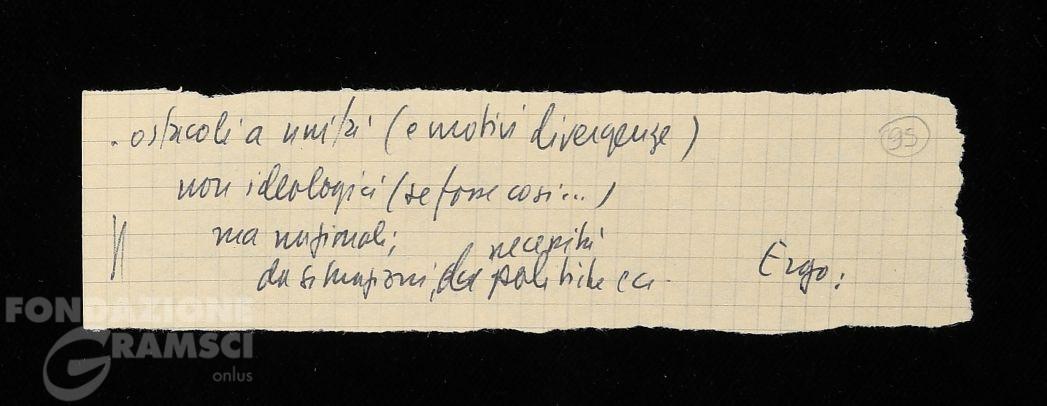 . ostacoli a unità (e motivi divergenze)
95
non ideologici (se fosse così...)
ma nazionali;
necessità
da situazioni, da politiche ecc.
Ergo:
FONDAZIONE
GRAMSCI
onlus